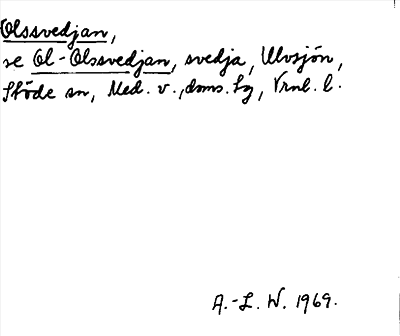 Olssvedjan,
se Ol-Olssvedjan, svedja, Ulvsjön,
Stöde sn, Med. v., doms. tg, Vrnl. l.
A.-L. W. 1969.